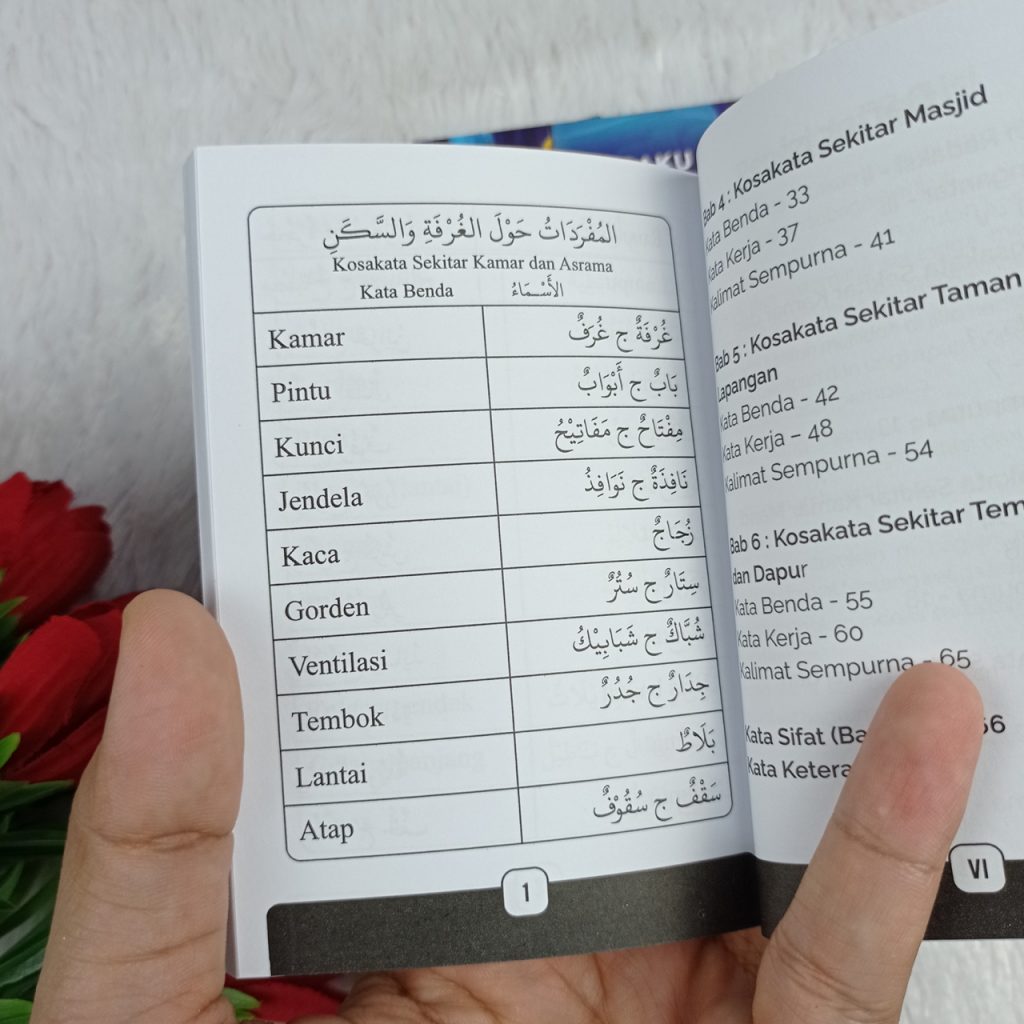 المُفْرَدَاتُ حَوْلَ الغُرْفَةِ وَالسَّكَنِ
Kosakata Sekitar Kamar dan Asrama
Kata Benda الأَسْمَاءُ
Kamar غُرْفَةٌ ج غُرَفٌ
Pintu بَابٌ ج أَبْوَابٌ
Kunci مِفْتَاحٌ ج مَفَاتِيْحُ
Jendela نَافِذَةٌ ج نَوَافِذُ
Kaca زُجَاجٌ
Gorden سِتَارٌ ج سُتُرٌ
Ventilasi شُبَّاكٌ ج شَبَابِيْكُ
Tembok جِدَارٌ ج جُدُرٌ
Lantai بَلَاطٌ
Atap سَقْفٌ ج سُقُوْفٌ
1
Bab 4 : Kosakata Sekitar Masjid
Kata Benda - 33
Kata Kerja - 37
Kalimat Sempurna - 41
Bab 5 : Kosakata Sekitar Taman
Lapangan
Kata Benda - 42
Kata Kerja - 48
Kalimat Sempurna - 54
Bab 6 : Kosakata Sekitar Tem
dan Dapur
Kata Benda - 55
Kata Kerja - 60
Kalimat Sempurna - 65
Kata Sifat (Ba
Kata Ketera
VI